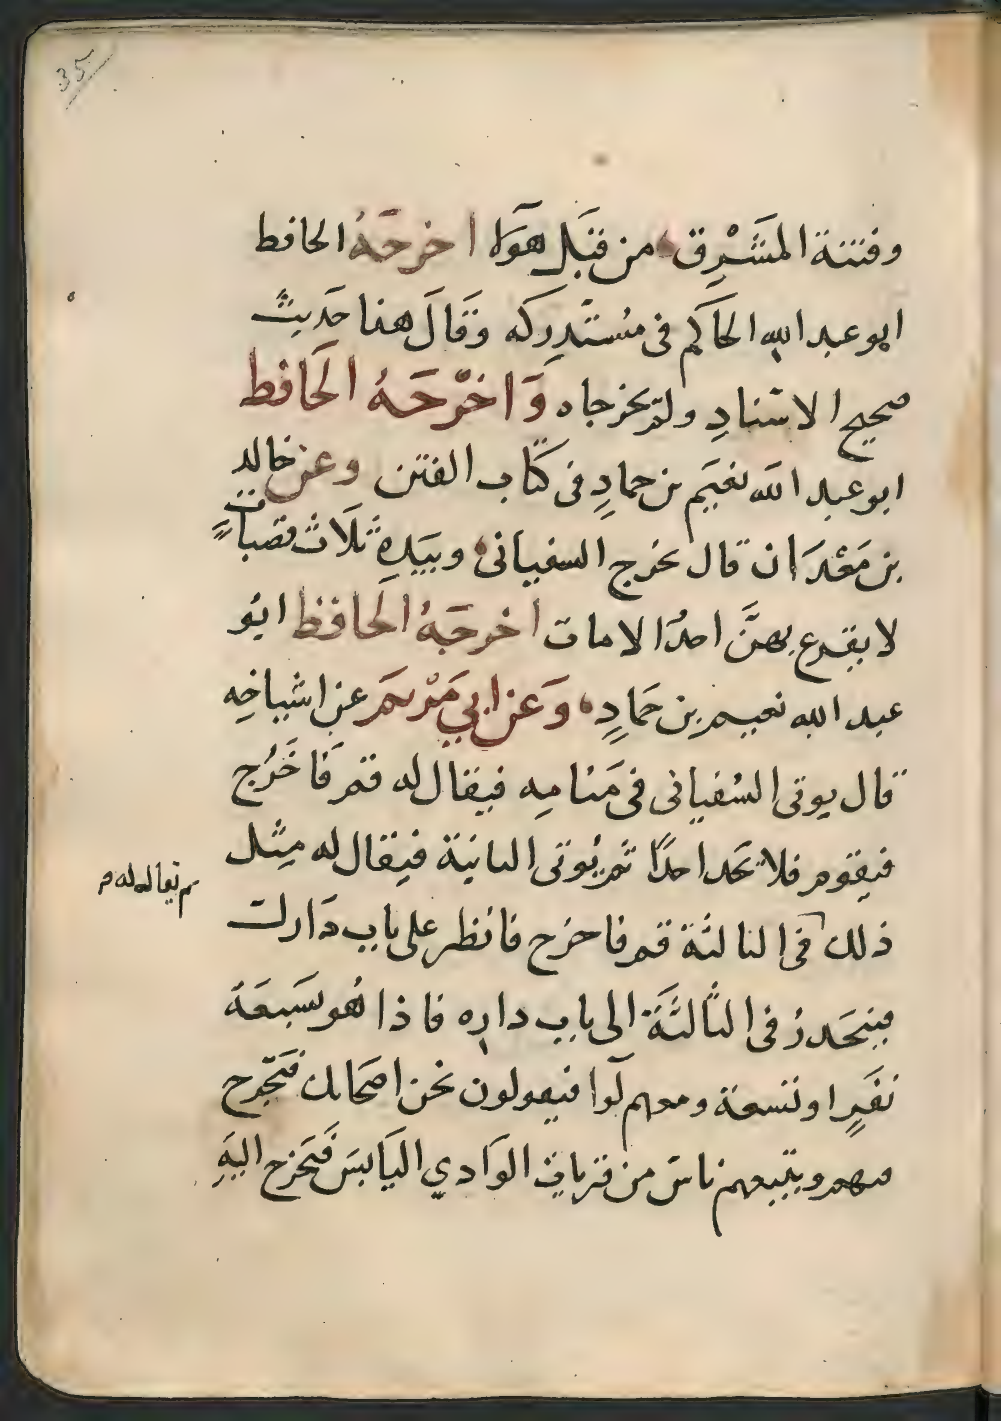 35
وفتنة المَشْرِق من قبَل هَوَلا اخرجَهُ الحافظ
ابو عبد الله الحَاكم فى مسْتَدرِكه وَقَالَ هذا حَديثٌ
صحيح الاسْنادِ ولم يخرجاه وَاخرْجَهُ الحَافظ
ابو عبد الله نعَيَم بن حمادٍ فى كتَاب الفتن وعن خالد
بن مَعْدَان قال يخرج السفيانى وبيَدِهِ ثَلَاث قصباتٍ
لا يقرع بهنَّ احدًا الا مات اخرجَهُ الحَافظ ابُو
عبد الله نعيم بن حَمادٍ وَعَن ابي مَرْيَم عن اشياخِه
قال يوتى السُفيانى فى مَنامِه فيقال له قم فَاخَرُج
فيقوم فلا يَجد احدًا ثم يُوتى الثانية فيقال له مِثل
ذلك فى الثالثة قم فاخرج فانظر على باب دَارك
ثم يقال له
فينحَدرُ فى الثَالثَة الى باب داره فاذا هُو بسَبعَة
نفَرٍ او تسعة ومعهم لَوا فيقولون نحن اصحَابك فيَخرج
معهم ويتبعهم ناسٌ من قريات الوَادي اليَابسَ فَيَخرج اليَهِ